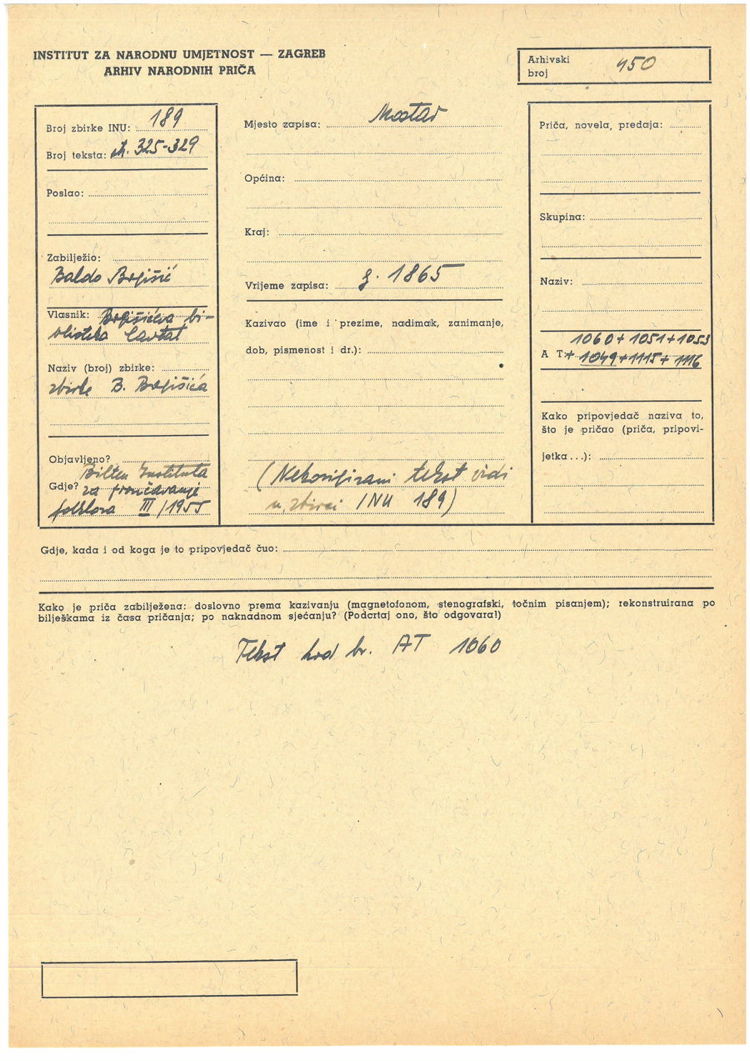 INSTITUT ZA NARODNU UMJETNOST — ZAGREB
ARHIV NARODNIH PRIČA
Arhivski broj 150
Broj zbirke INU: 189
Broj teksta: str. 325-329
Poslao:
Zabilježio:
Baldo Bogišić
Vlasnik: Bogišićeva bi-
blioteka Cavtat
Naziv (broj) zbirke:
zbirke B. Bogišića
Objavljeno?
Bilten Instituta
Gdje? za proučavanje
folklora III/1955
Mjesto zapisa: Mostar
Općina:
Kraj:
Vrijeme zapisa: g. 1865
Kazivao (ime i prezime, nadimak, zanimanje,
dob, pismenost i dr.):
(Nekorigirani tekst vidi
u zbirci INU 189)
Priča, novela, predaja:
Skupina:
Naziv:
1060+1051+1053
A T + 1049+1115+1116
Kako pripovjedač naziva to,
što je pričao (priča, pripovi-
jetka . . .):
Gdje, kada i od koga je to pripovjedač čuo:
Kako je priča zabilježena: doslovno prema kazivanju (magnetofonom, stenografski, točnim pisanjem); rekonstruirana po
bilješkama iz časa pričanja; po naknadnom sjećanju? (Podcrtaj ono, što odgovara!)
Tekst kod br. AT 1060